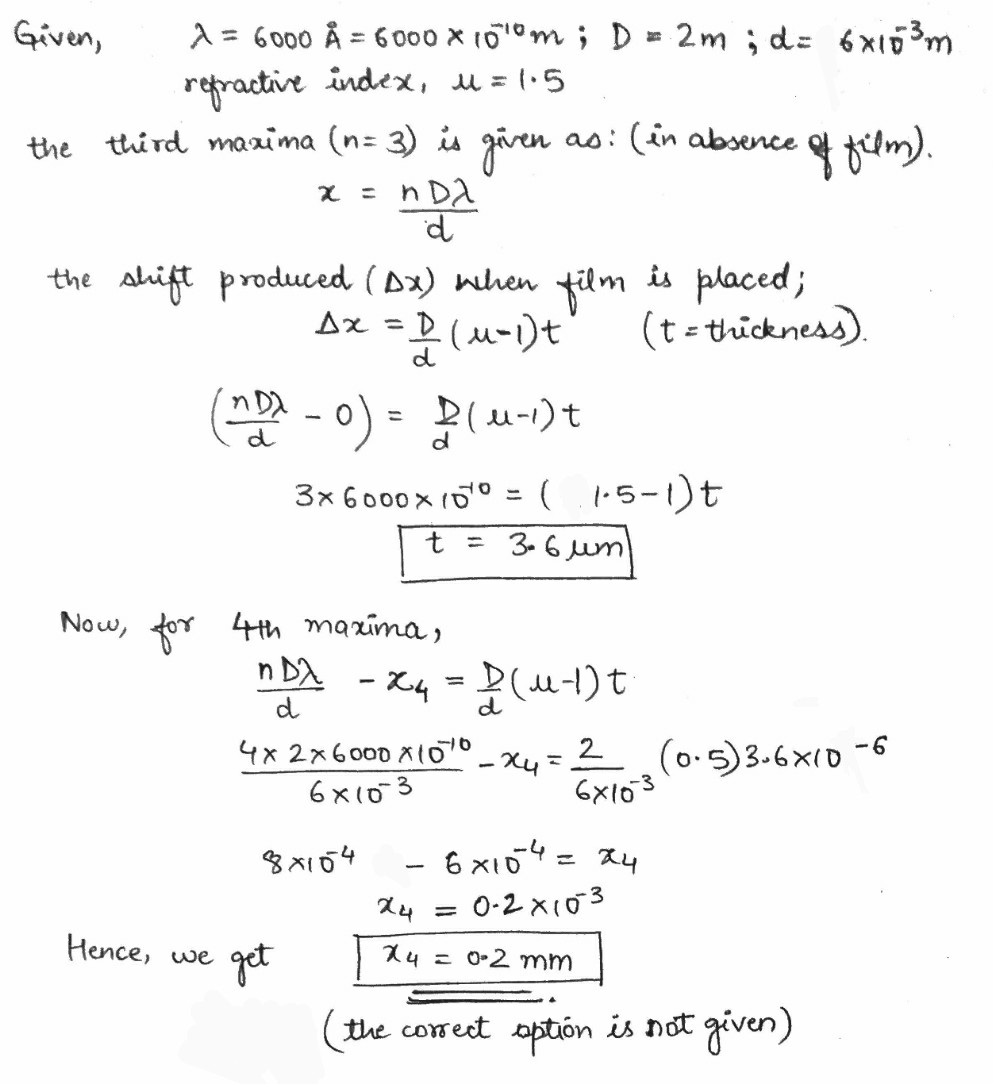 Given, λ = 6000 Å = 6000 × 10⁻¹⁰ m ; D = 2m ; d = 6×10⁻³ m
refractive index, μ = 1.5
the third maxima (n= 3) is given as: (in absence of film).
x = nDλ/d
the shift produced (Δx) when film is placed;
Δx = D/d (μ-1)t (t = thickness).
(nDλ/d - 0) = D/d (μ-1)t
3×6000×10⁻¹⁰ = ( 1.5-1)t
t = 3.6 μm
Now, for 4th maxima,
nDλ/d - x₄ = D/d (μ-1)t
4× 2×6000×10⁻¹⁰/6×10⁻³ - x₄ = 2/6×10⁻³ (0.5)3.6×10⁻⁶
8×10⁻⁴ - 6×10⁻⁴ = x₄
x₄ = 0.2×10⁻³
Hence, we get x₄ = 0.2 mm
(the correct option is not given)